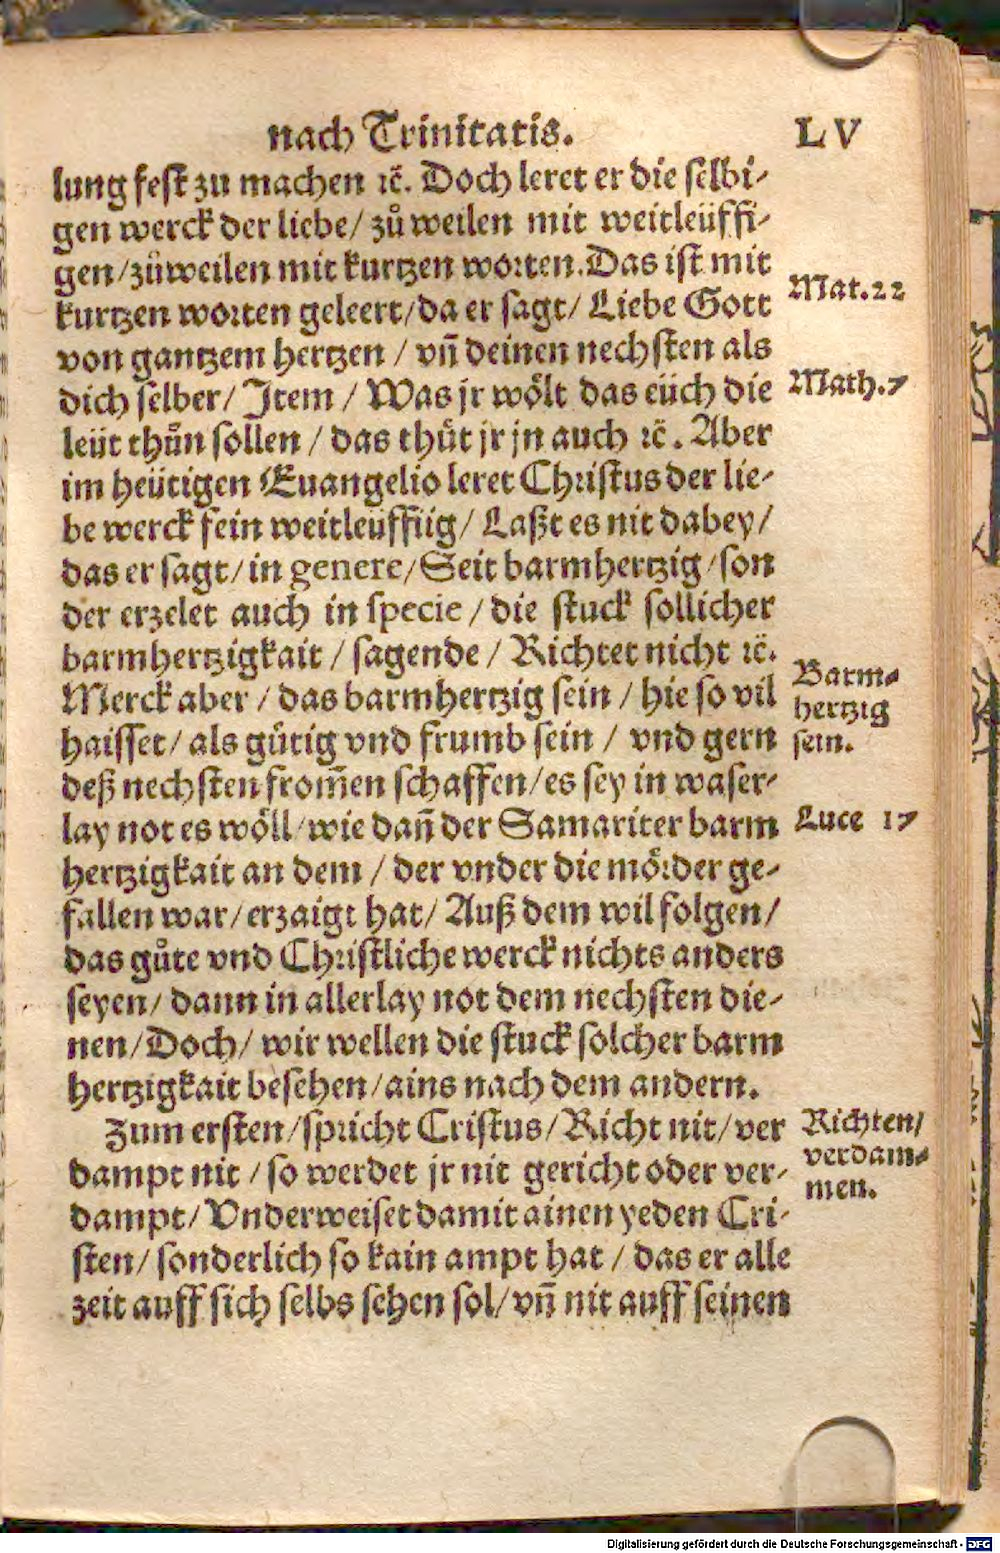 nach Trinitatis. LV
lung fest zu machen ⁊c̄. Doch leret er die selbi-
gen werck der liebe/ zů weilen mit weitleüffi-
gen/zůweilen mit kurtzen worten. Das ist mit
kurtzen worten geleert/da er sagt/ Liebe Gott
Mat. 22
von gantzem hertzen / vn̄ deinen nechsten als
dich selber/ Item / Was jr wölt das eüch die
Math. 7
leüt thůn sollen / das thůt jr jn auch ⁊c̄. Aber
im heütigen Euangelio leret Christus der lie-
be werck sein weitleüffiig/ Laßt es nit dabey/
das er sagt/ in genere/ Seit barmhertzig/ son
der erzelet auch in specie / die stuck sollicher
barmhertzigkait / sagende / Richtet nicht ⁊c̄.
Merck aber / das barmhertzig sein / hie so vil
haisset/ als gütig vnd frumb sein / vnd gern
Barm-
hertzig
sein.
deß nechsten from̄en schaffen/es sey in waser-
lay not es wöll/wie dan̄ der Samariter barm
Luce 17
hertzigkait an dem / der vnder die mörder ge-
fallen war/erzaigt hat/ Auß dem wil folgen/
das gůte vnd Christliche werck nichts anders
seyen/ dann in allerlay not dem nechsten die-
nen/Doch/ wir wellen die stuck solcher barm
hertzigkait besehen/ains nach dem andern.
Zum ersten/spricht Cristus/Richt nit/ver
dampt nit / so werdet jr nit gericht oder ver-
dampt/ Vnderweiset damit ainen yeden Cri-
Richten/
verdam-
men.
sten/ sonderlich so kain ampt hat / das er alle
zeit auff sich selbs sehen sol/vn̄ nit auff seinen
Digitalisierung gefördert durch die Deutsche Forschungsgemeinschaft - DFG